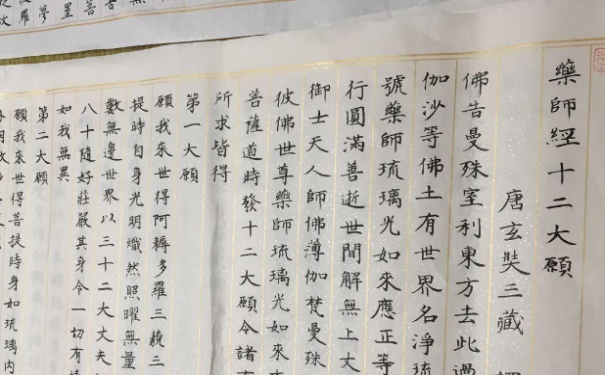 藥師經十二大願
唐玄奘三藏
佛告曼殊室利東方去此過
伽沙等佛土有世界名淨琉
號藥師琉璃光如來應正等
行圓滿善逝世間解無上大
御士天人師佛薄伽梵曼殊
彼佛世尊藥師琉璃光如來
菩薩道時發十二大願令諸有
所求皆得
第一大願
願我來世得阿耨多羅三藐三
提時自身光明熾然照曜無量
數無邊世界以三十二大丈夫
八十隨好莊嚴其身令一切有
如我無異
第二大願
願我來世得菩提時身如琉璃內